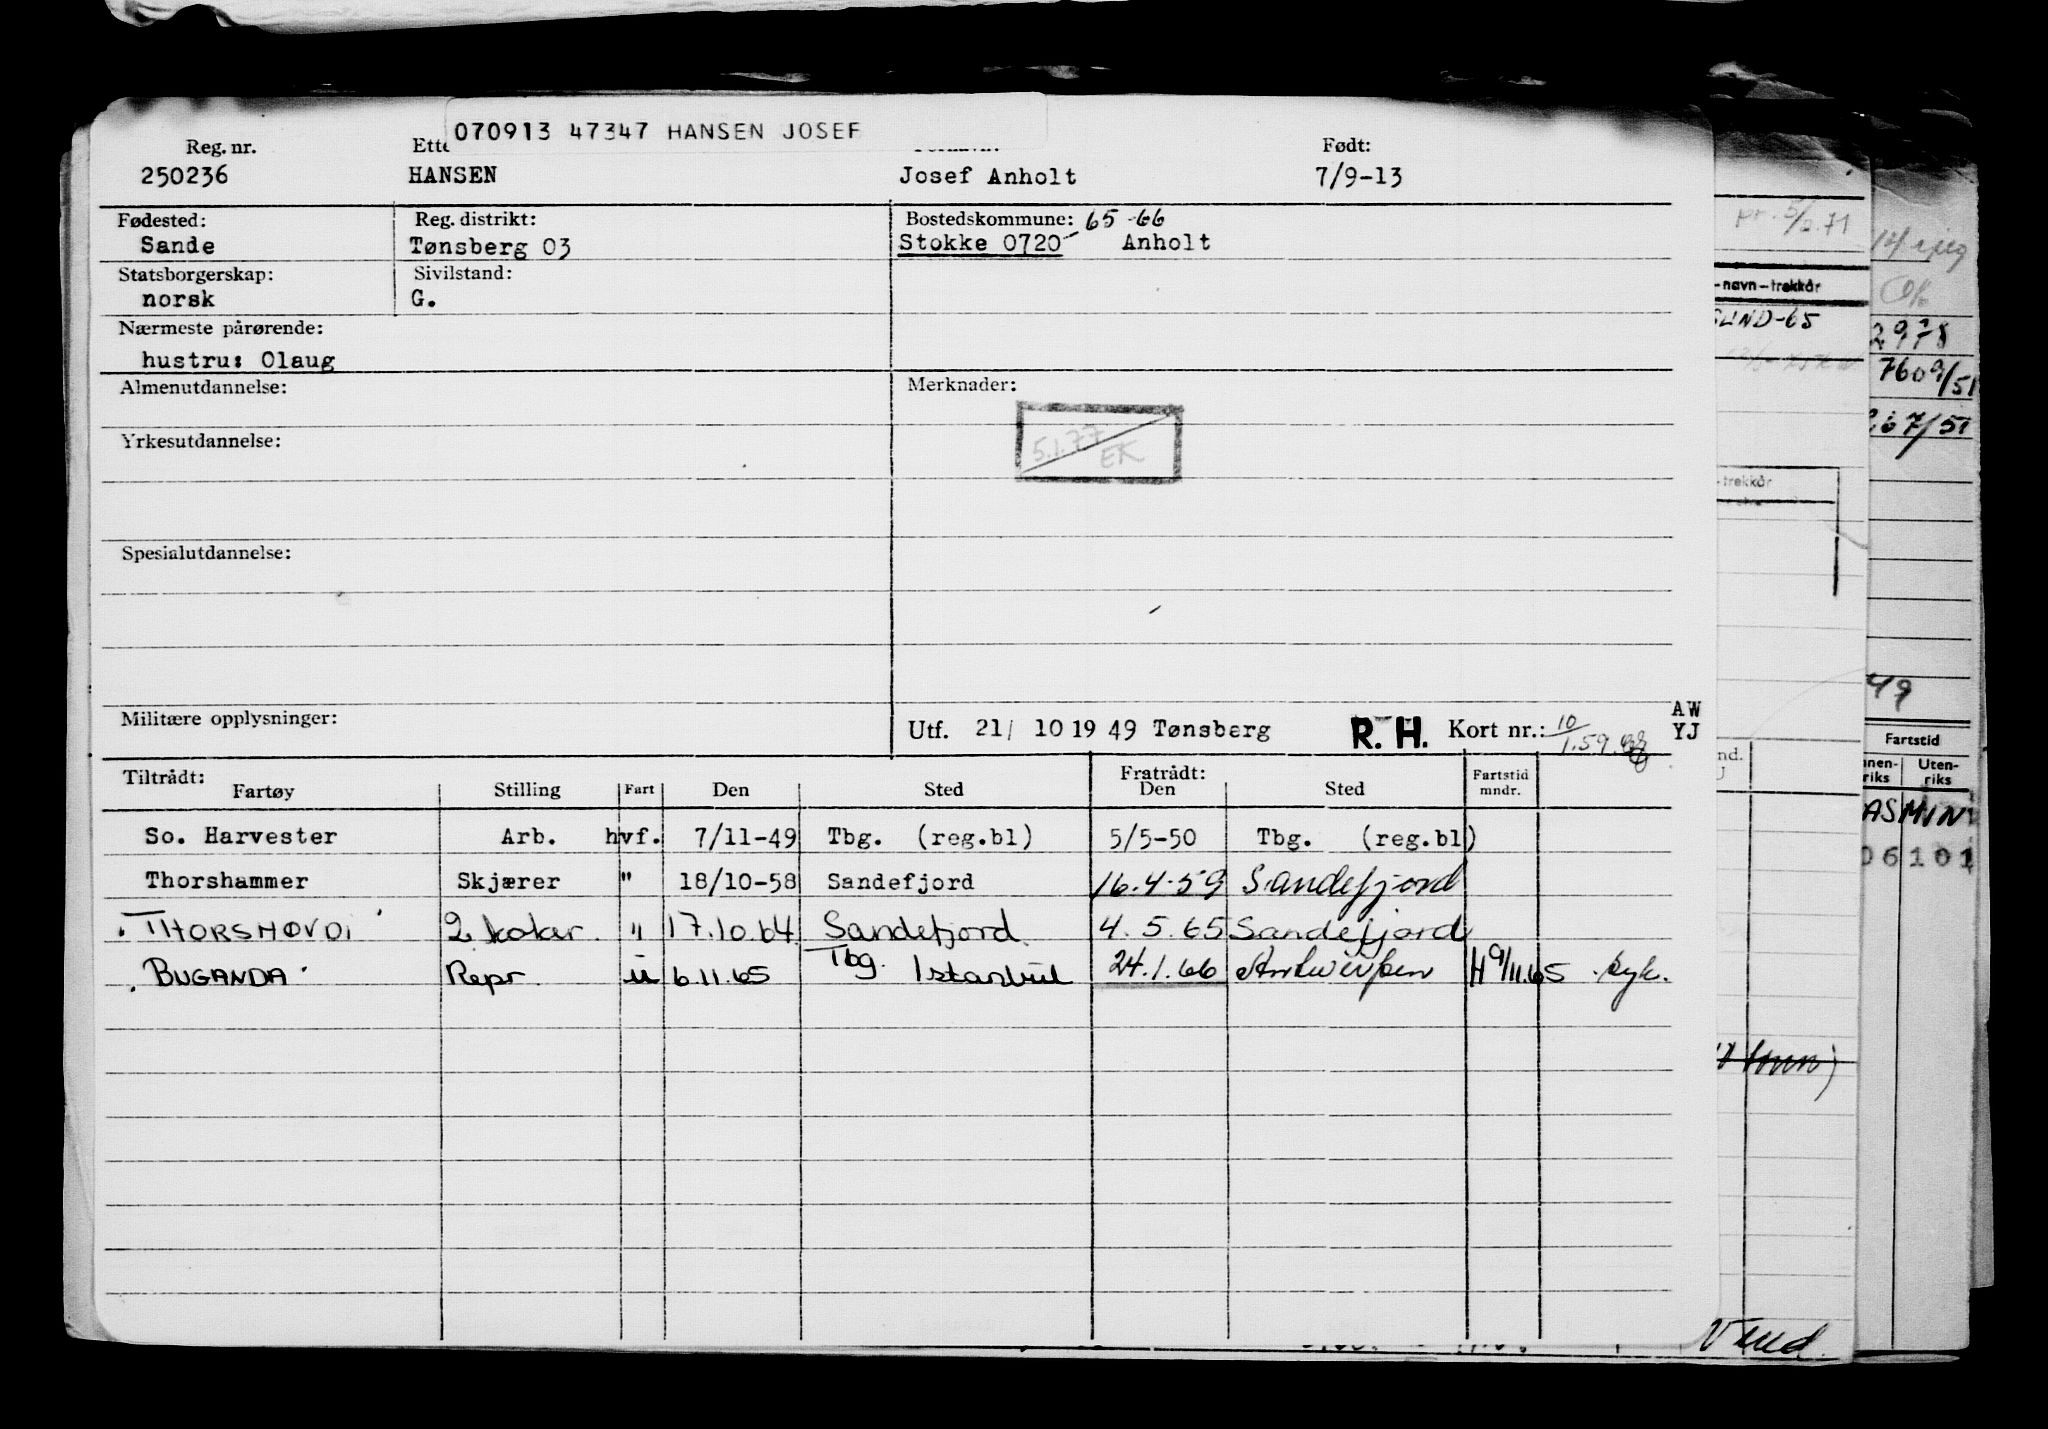 070913 47347 HANSEN JOSEF
Reg. nr. Født:
250236 HANSEN Josef Anholt 7/9-13
Fødested: Reg. distrikt: Bostedskommune: 65-66
Sande Tønsberg 03 Stokke 0720 Anholt
Statsborgerskap: Sivilstand:
norsk G.
Nærmeste pårørende:
hustru: Olaug
Almenutdannelse: Merknader:
5.1.77 EK
Yrkesutdannelse:
Spesialutdannelse:
Militære opplysninger: Utf. 21/ 10 19 49 Tønsberg R. H. Kort nr.: 10/1.59. AW YJ
Tiltrådt: Fratrådt:
Fartøy Stilling Fart Den Sted Den Sted Fartstid mndr.
So. Harvester Arb. hvf. 7/11-49 Tbg. (reg.bl) 5/5-50 Tbg. (reg.bl)
Thorshammer Skjærer " 18/10-58 Sandefjord 16.4.59 Sandefjord
THORSHØVDI 2 koker " 17.10.64 Sandefjord 4.5.65 Sandefjord
BUGANDA Repr. u 6.11.65 Tbg. Istanbul 24.1.66 Antwerpen H 9/11.65 syk.
pr. 5/2.71
-navn-trekkår
SUND-65
-trekkår
2978
7609/51
49
Fartstid
Uten-
riks
06101
Vend.